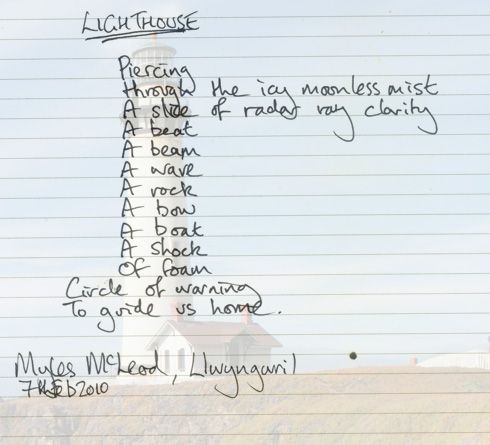 LIGHTHOUSE
Piercing
through the icy moonless mist
A slide of radar ray clarity
A beat
A beam
A wave
A rock
A bow
A boat
A shock
Of foam
Circle of warning
To guide us home.
Myles McLeod, Llwyngwril
7th Feb 2010